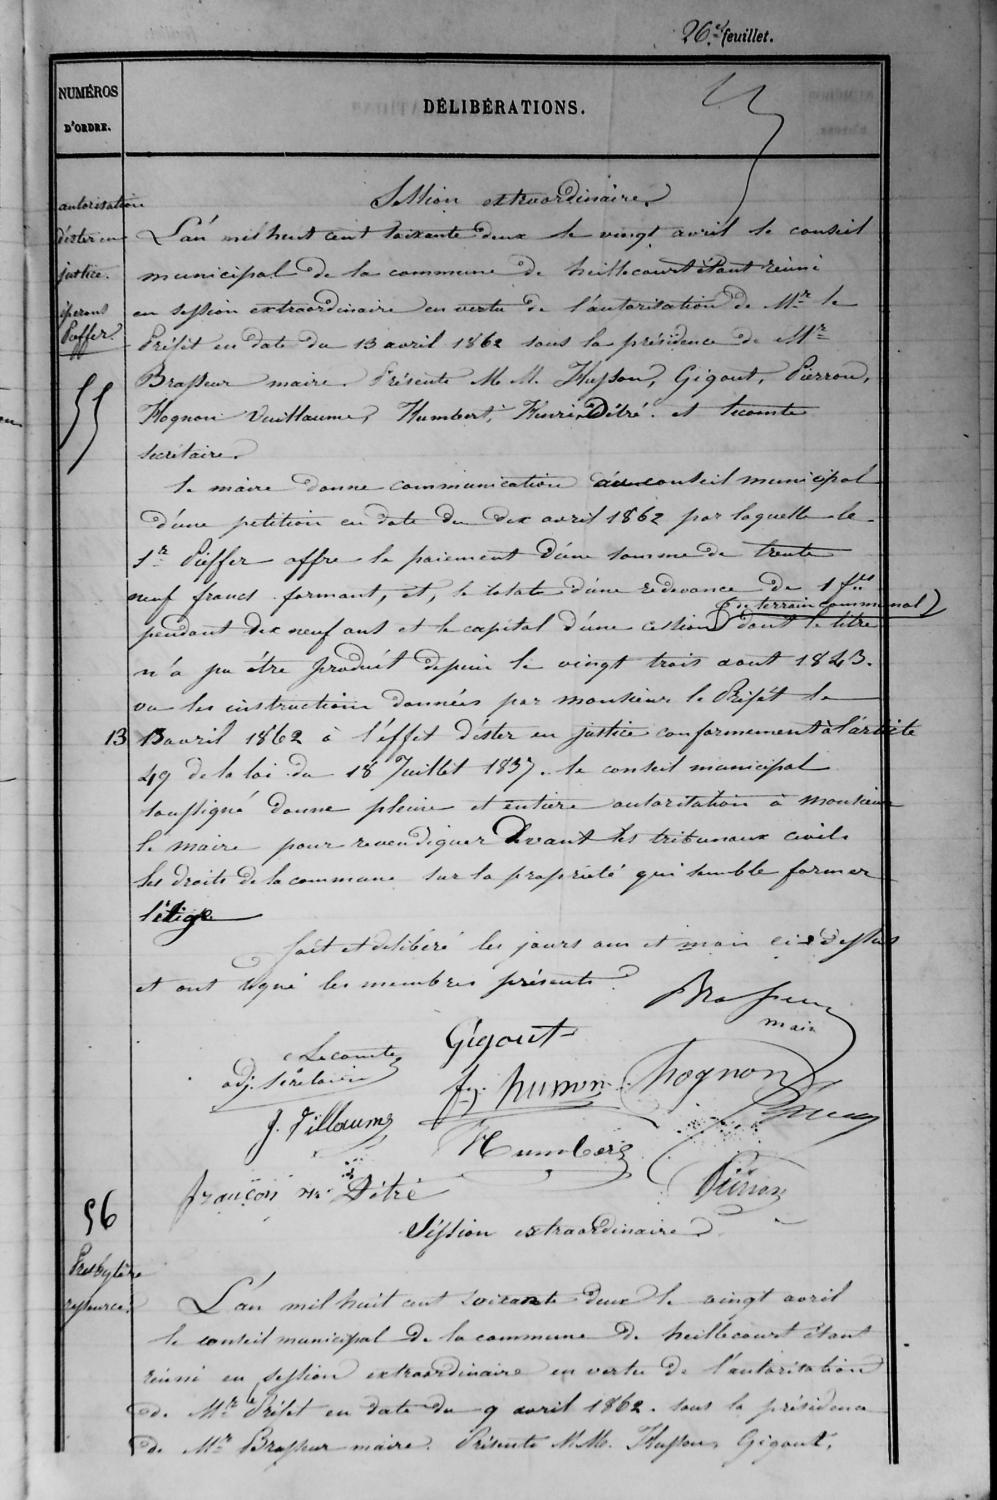 26.e feuillet.
NUMÉROS
D'ORDRE.
DÉLIBÉRATIONS.
autorisation
d'ester en
justice.
55
Session extraordinaire.
L'an mil huit cent soixante deux le vingt avril le conseil
municipal de la commune de heillecourt étant réuni
en session extraordinaire en vertu de l'autorisation de Mr le
Préfet en date du 13 avril 1862 sous la présidence de Mr
Brasseur maire. Présents M.M. Husson, Gigout, Pierron,
Hognon Vuillaume, Humbert, Henri, Détré. et Lecomte
secrétaire.
le maire donne communication au conseil municipal
d'une petition en date du dix avril 1862 par laquelle le
Sr Pieffer offre le paiement d'une somme de trente
neuf francs formant, et, le totale d'une redevance de 1 fcs
(de terrain communal)
pendant dix neuf ans et le capital d'une cession dont le titre
n'a pu être produit depuis le vingt trois aout 1843.
vu les instructions données par monsieur le Préfet le
13 13 avril 1862 à l'éffet d'ester en justice conformement à l'article
49 de la loi du 18 Juillet 1837. le conseil municipal
soussigné donne pleine et entière autorisation à monsieur
le maire pour revendiquer devant les tribunaux civils
les droits de la commune sur la propriété qui semble former
litige
fait et délibéré les jours an et mois ci-dessus
et ont signé les membres présents
Brasseur
maire
Gigout
Lecomte
adj. Secrétaire
husson
hognon
J. Villaume
Humbert
françois Détré
Pierron
56
Session extraordinaire
Presbytère
ressources
L'an mil huit cent soixante deux le vingt avril
le conseil municipal de la commune de heillecourt étant
réuni en session extraordinaire en vertu de l'autorisation
de Mr le Préfet en date du 9 avril 1862. sous la présidence
de Mr Brasseur maire. Présents M.M. Husson, Gigout,